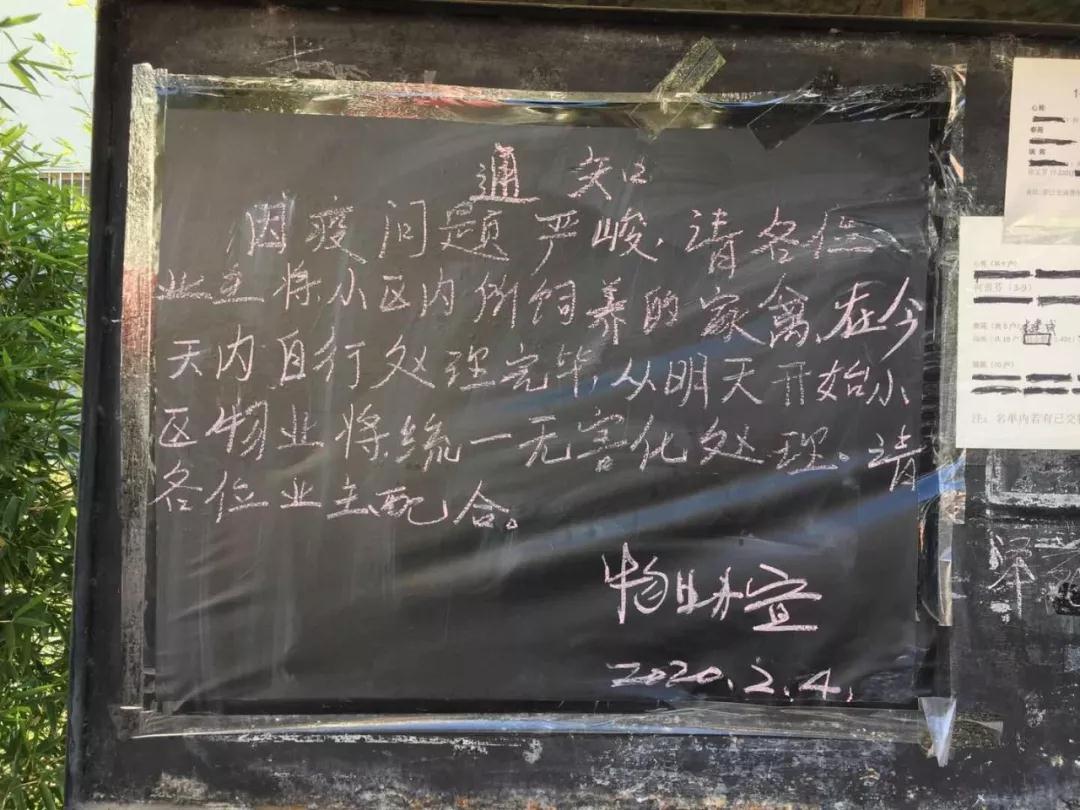 通知
因疫问题严峻,请各位
业主将小区内所饲养的家禽,在今
天内自行处理完毕,从明天开始小
区物业将统一无害化处理、请
各位业主配合。
物业办宣
2020.2.4.
心苑(共9户)
注:名单内若有已交